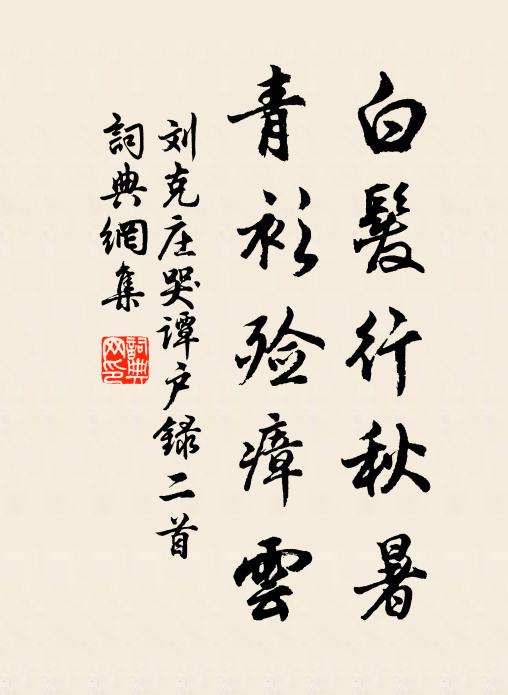 白髮行秋暑
青衫殮瘴雲
刘克庄哭谭户録二首
詞典網集
詞典網印